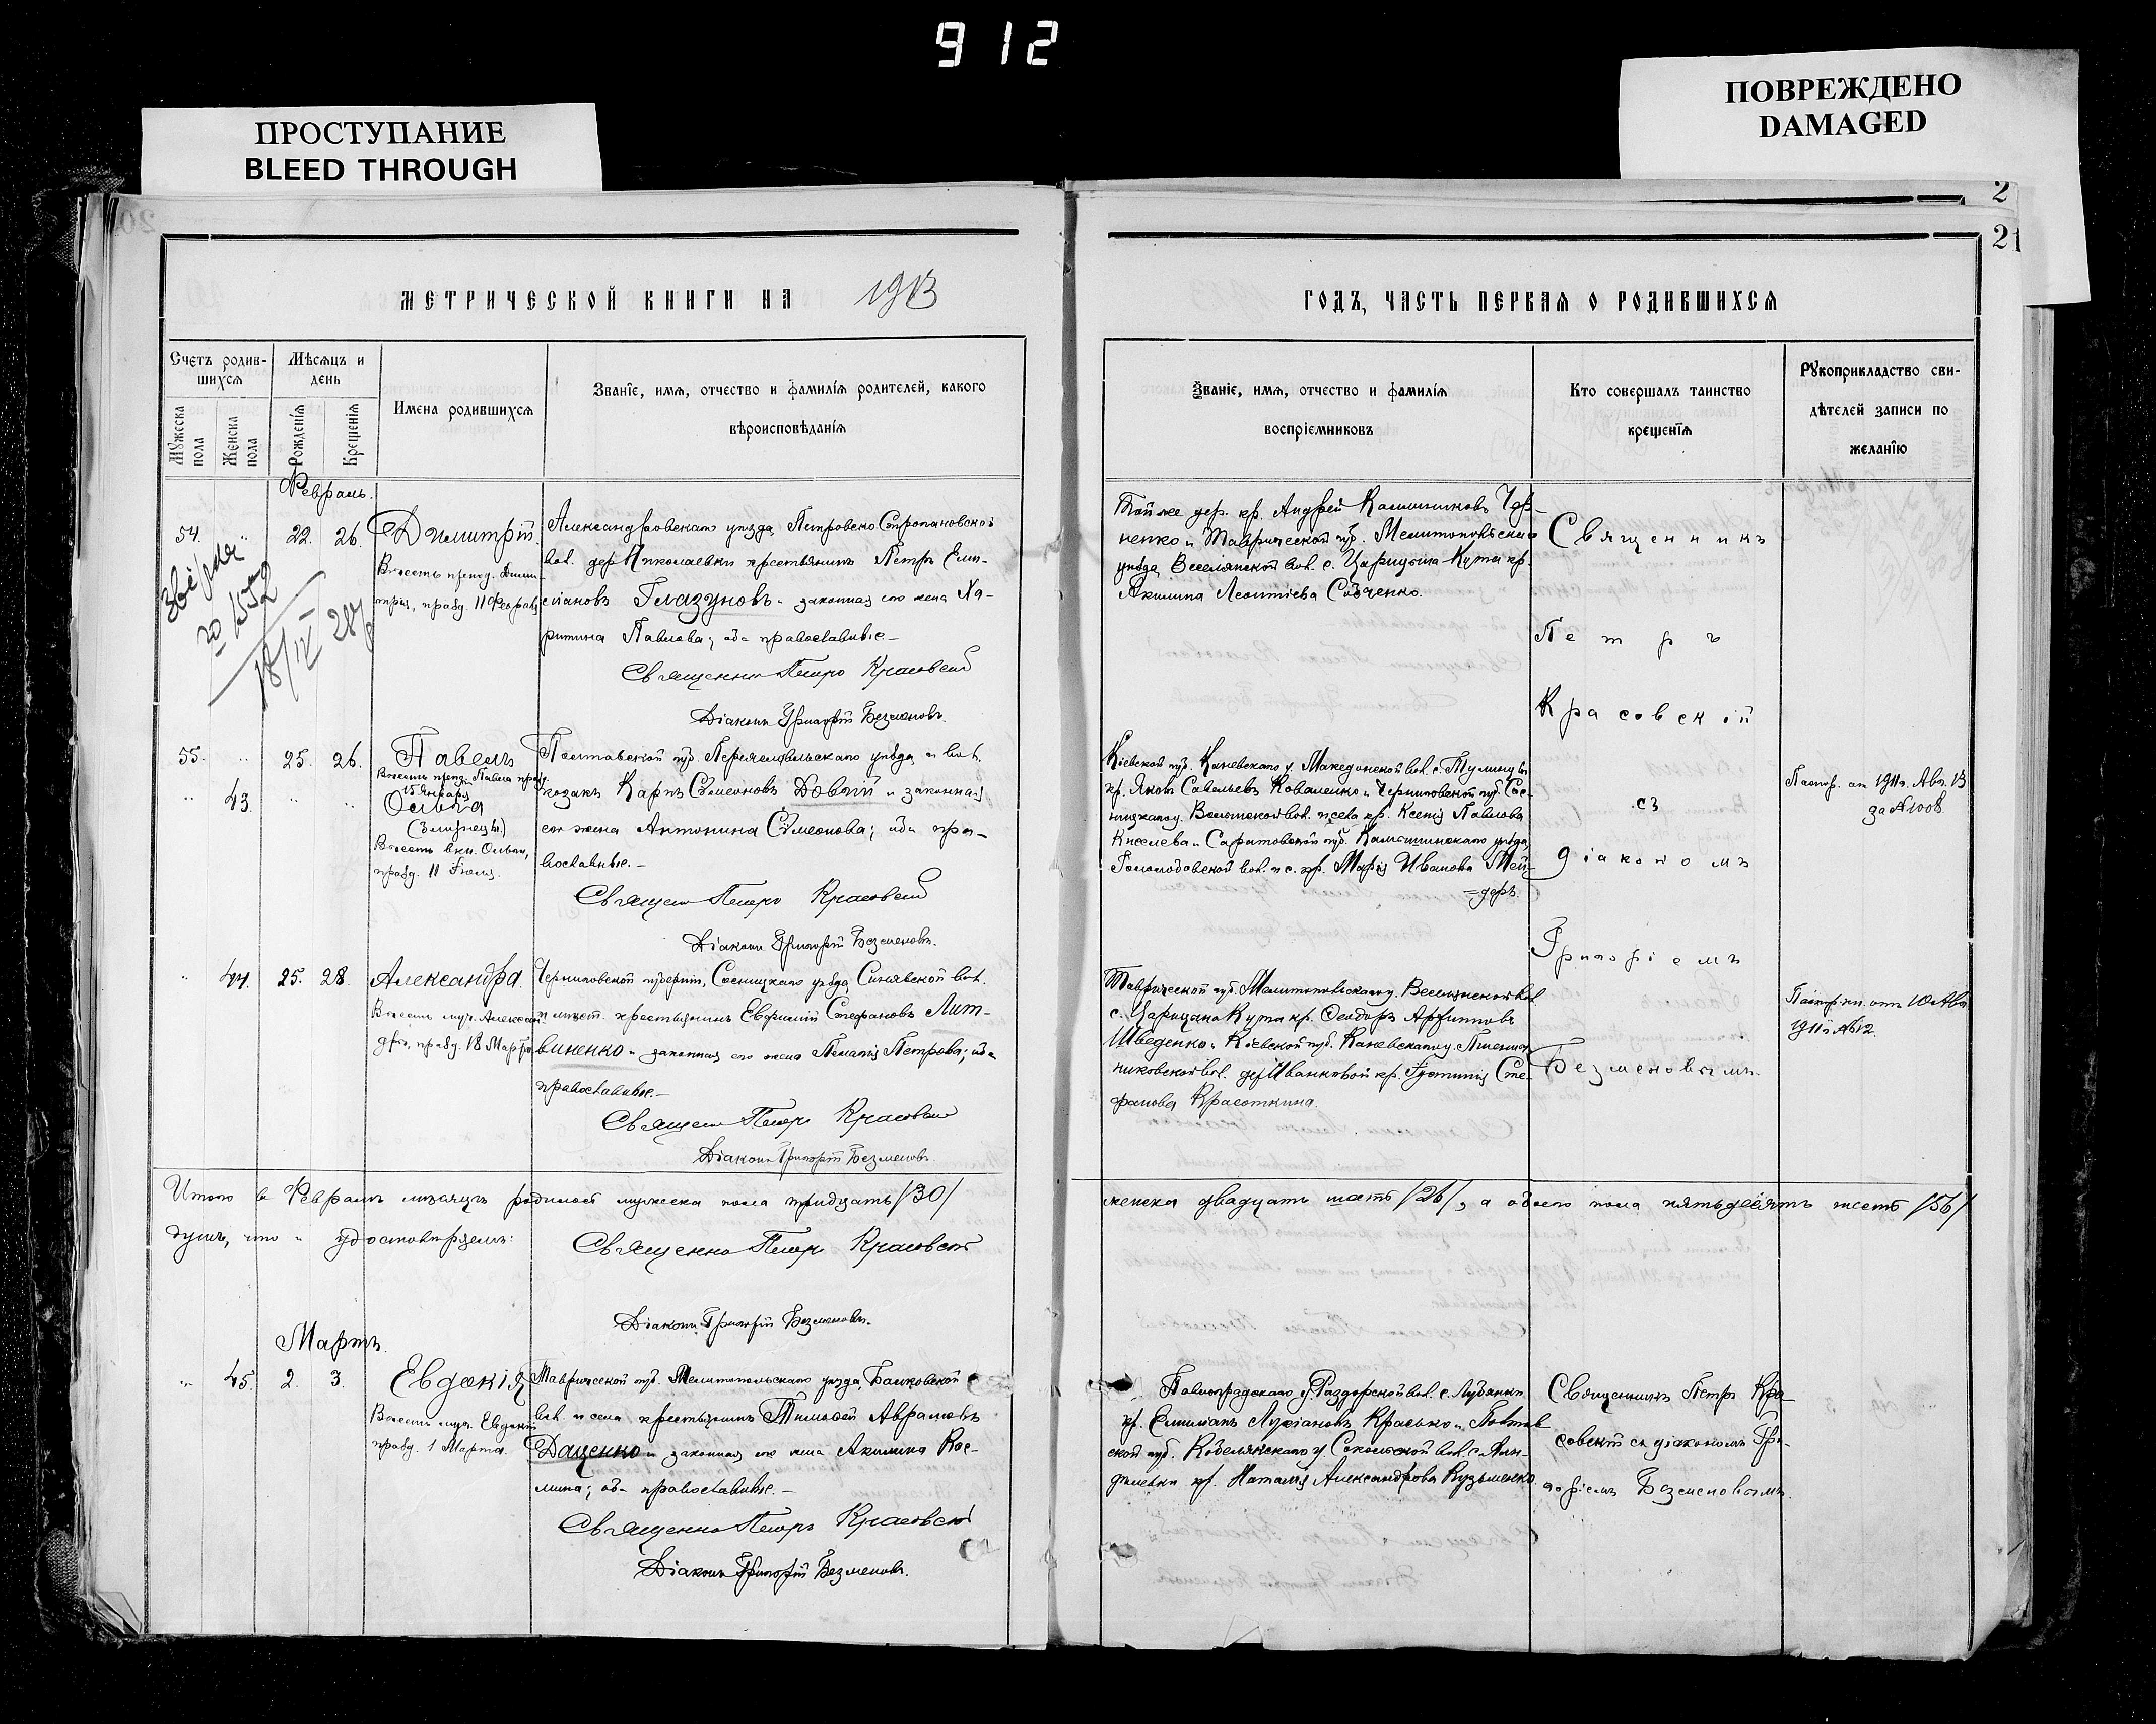 912
ПРОСТУПАНИЕ
BLEED THROUGH
ПОВРЕЖДЕНО
DAMAGED
2
21
МЕТРИЧЕСКОЙ КНИГИ НА 1913
ГОДЪ, ЧАСТЬ ПЕРВАЯ О РОДИВШИХСЯ
Счетъ родив-
шихся
Мѣсяцъ и
день
Мужеска пола
Женска пола
Рожденія
Крещенія
Имена родившихся
Званіе, имя, отчество и фамилія родителей, какого
вѣроисповѣданія
Званіе, имя, отчество и фамилія
воспріемниковъ
Кто совершалъ таинство
крещенія
Рукоприкладство сви-
дѣтелей записи по
желанію
Февраль.
54. " 22. 26. Димитрій.
Въ честь препод. Дими-
трія, празд. 11 Февраля
Александровскаго уѣзда, Петровско
вол. дер. Николаевки крестьянинъ Петръ Еми-
еліановъ Глазуновъ и законная его жена Ха-
ритина Павлова; оба православные.—
Священникъ Петръ Красовскій
Діаконъ Григорій Безменовъ.
Той же дер. кр. Андрей Чер-
ненко и Таврической губ. Мелитопольскаго
уѣзда, Веселянской вол. с. Царицына-Кута кр.
Акилина Леонтіева
Священникъ
Петръ
Красовскій
съ
діакономъ
Григоріемъ
Безменовымъ.
18/IX 28
55. " 25. 26. Павелъ
Въ честь препод. Павла празд.
15 Января
" 43. " " Ольга
(Близнецы)
Въ честь вкн. Ольги,
празд. 11 Іюля.
Полтавской губ. Переяславльскаго уѣзда и вол.
козакъ Карпъ Сѵмеоновъ Довгій и законная
его жена Антонина Сѵмеонова; оба пра-
вославные.—
Священ. Петръ Красовскій
Діаконъ Григорій Безменовъ.
Кіевской губ. Каневскаго у. Македонской вол. с. Тулинцы
кр. Яковъ Савельевъ Коваленко и Черниговской губ. Сос-
ницкаго у. вол. и села кр. Ксенія Павлова
Киселева и Саратовской губ. Камышинскаго уѣзда,
вол. и с. кр. Марія Иванова Мей-
=деръ.
Паспор. от 1911г. Авг. 13
за № 1008.
" 44. 25. 28. Александра.
Въ честь муч. Алексан-
дры, празд. 18 Марта
Черниговской губерніи, Сосницкаго уѣзда, Синявской вол.
и мѣст. крестьянинъ Евфимій Стефановъ Лит-
виненко и законная его жена Пелагія Петрова; оба
православные.—
Священ. Петръ Красовскій
Діаконъ Григорій Безменовъ.
Таврической губ. Мелитопольскаго у. Веселянской вол.
с. Царицына Кута кр. Ѳеодоръ
Шведенко и Кіевской губ. Каневскаго у. Пшенич-
никовской вол. дер. Иванковой кр. Іустинія Сте-
фанова Красоткина.
Паспорт. отъ 10 Авг.
1911 г. № 12.
Итого въ Февралѣ мѣсяцѣ родилось мужеска пола тридцать /30/
женска двадцать шесть /26/, а обоего пола пятьдесятъ шесть /56/
душъ, что и удостовѣряемъ:
Священникъ Петръ Красовскій
Діаконъ Григорій Безменовъ.
Мартъ.
" 45. 2. 3. Евдокія
Въ честь муч. Евдокіи
празд. 1 Марта.
Таврической губ. Мелитопольскаго уѣзда, Балковской
вол. и села крестьянинъ Тимоѳей Аврамовъ
Даценко и законная его жена Акилина Кос-
мина; оба православные.—
Священникъ Петръ Красовскій
Діаконъ Григорій Безменовъ.
Павлоградскаго у. Раздорской вол. с. Лубянки
кр. Емиліанъ Лукіановъ Красько и Полтав-
ской губ. Кобелякскаго у. Сокольской вол. с.
кр. Наталія Александрова Кузьменко.
Священникъ Петръ Кра-
совскій съ діакономъ Гри-
горіемъ Безменовымъ.